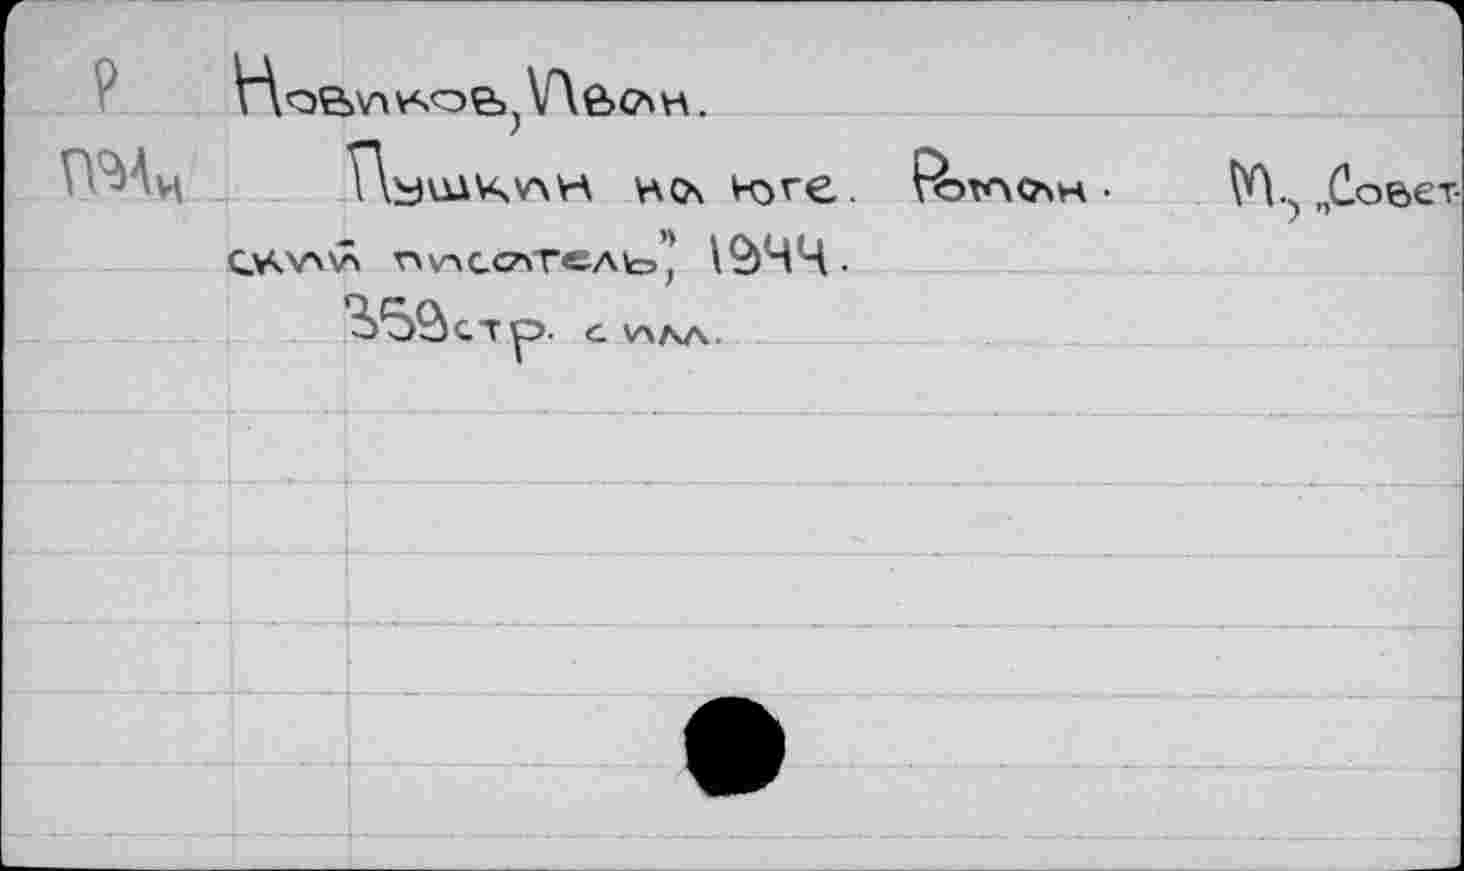 Р Новиков, Иван.
П941н Пушкин на юге. Роман. М., „Совет-
ский писатель", 1944.
359 стр. с илл.